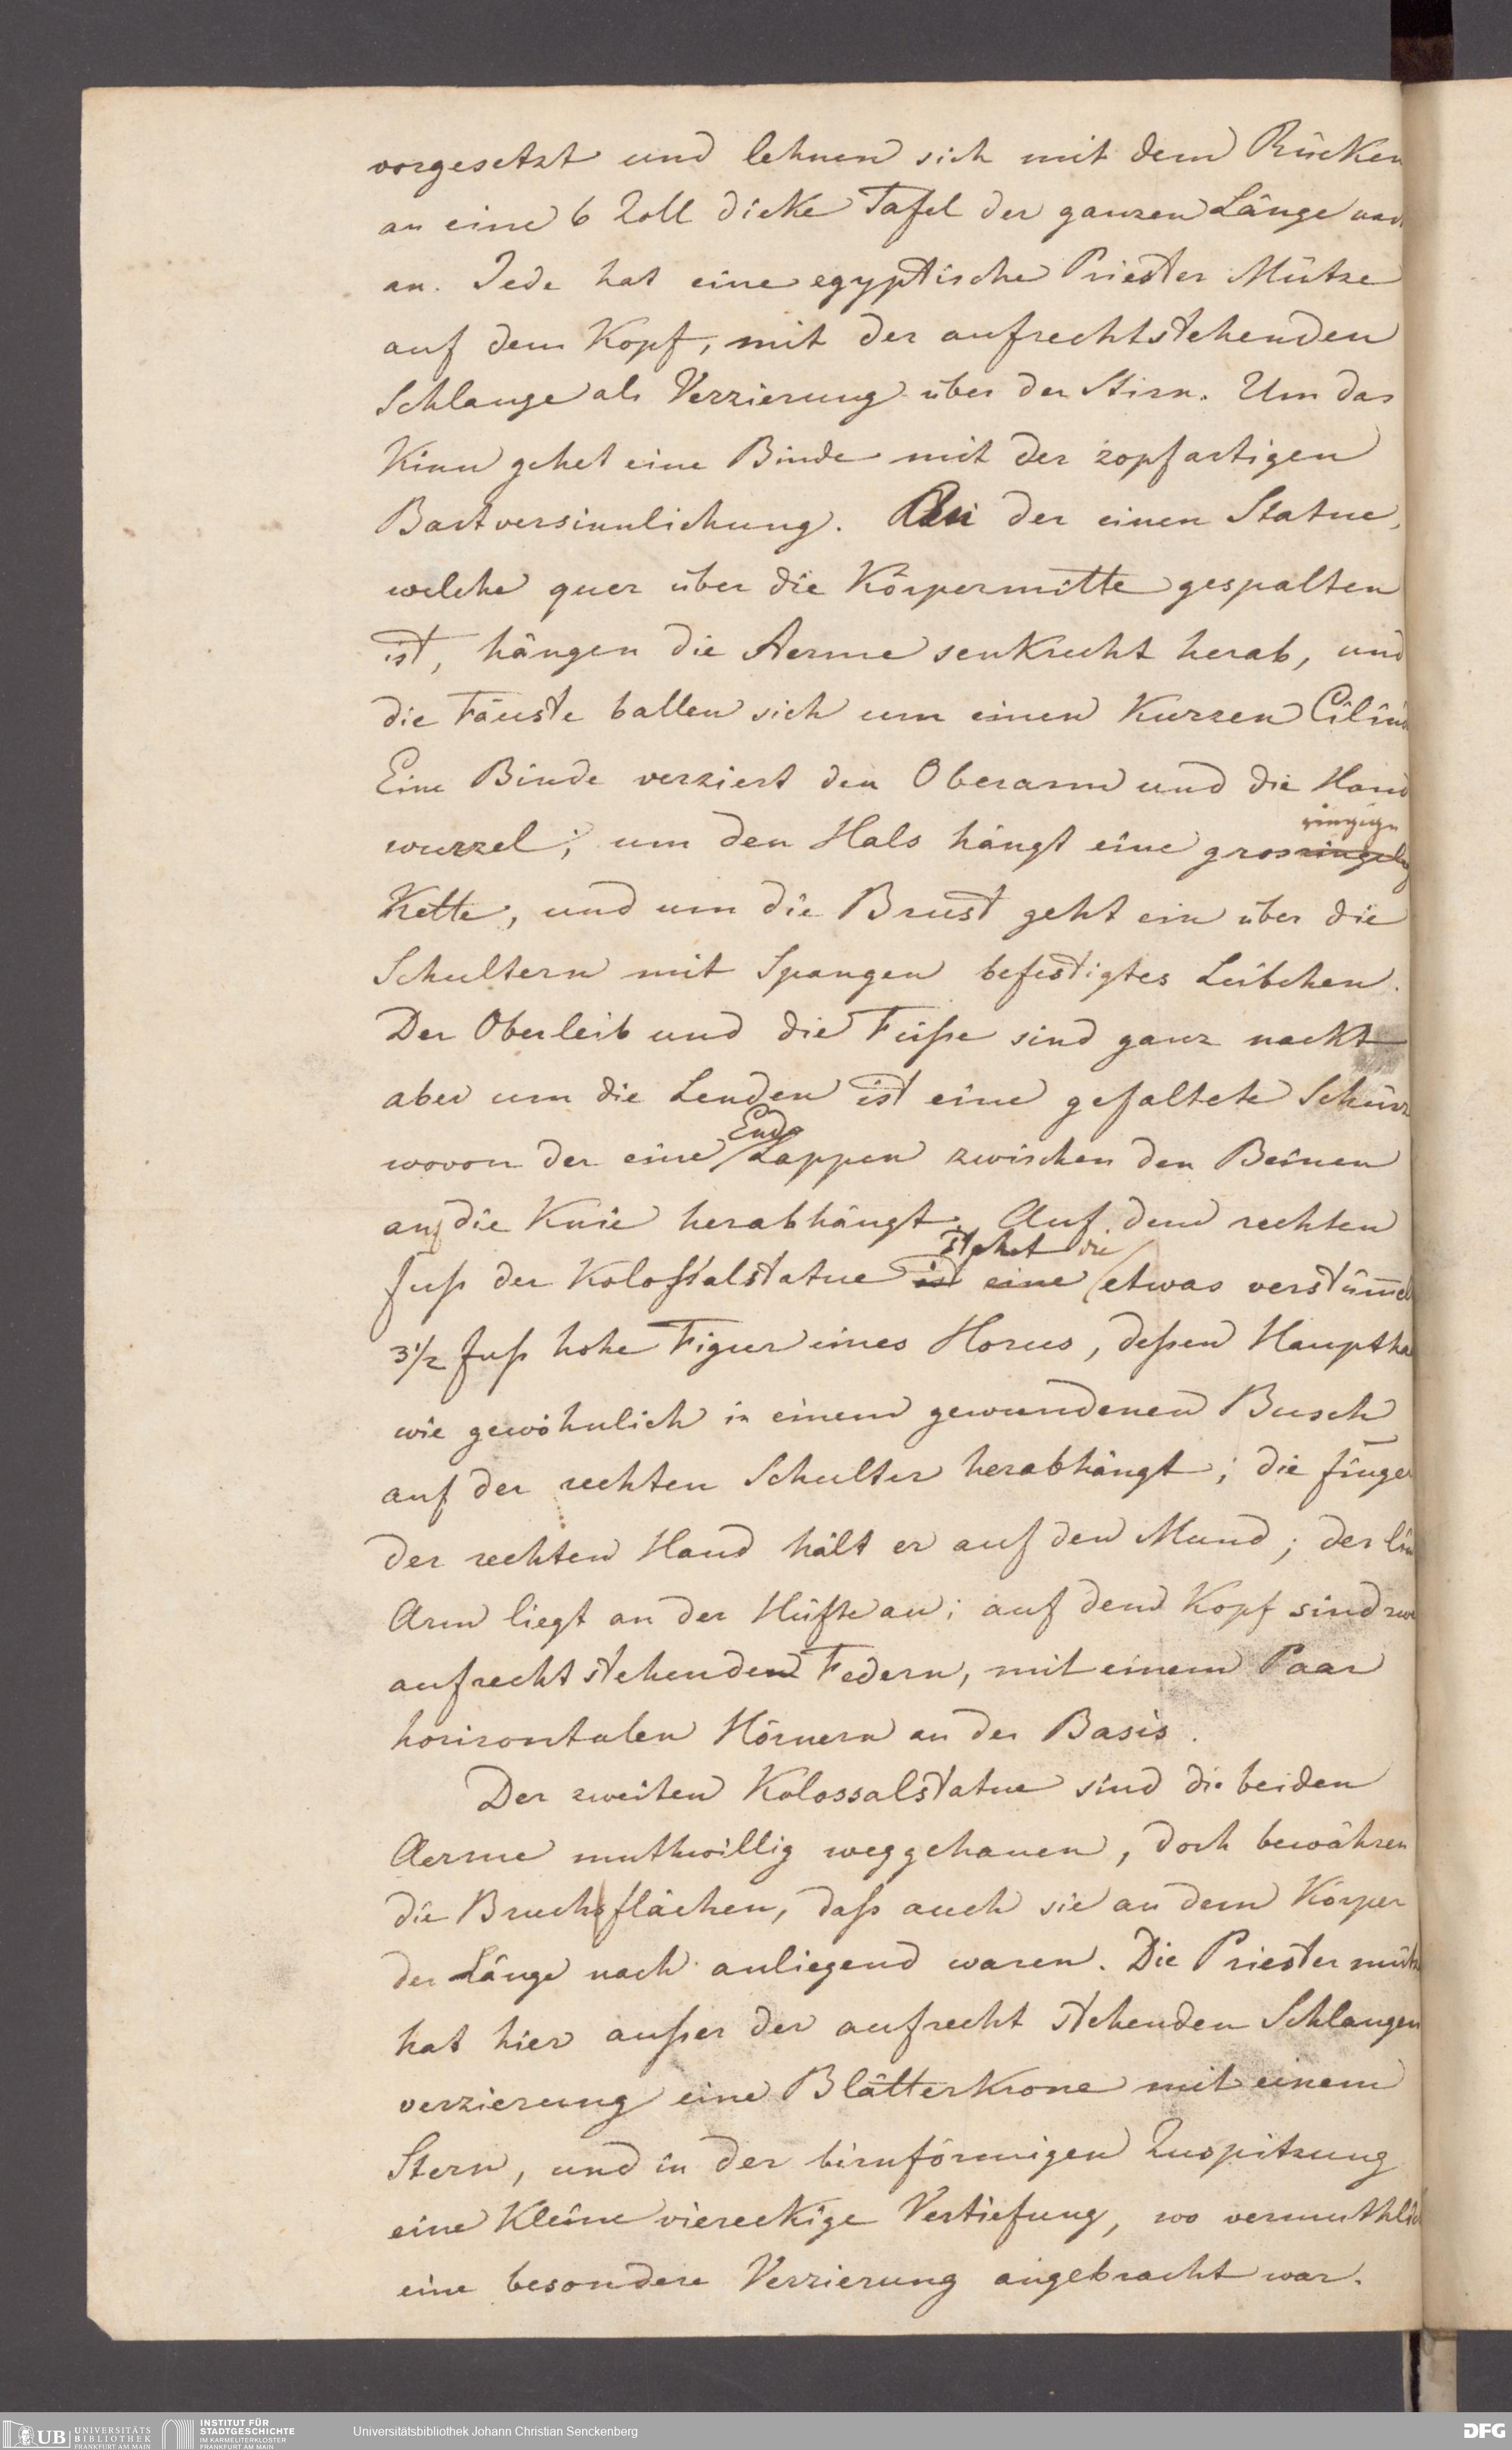 vorgesetzt und lehnen sich mit dem Rücken
an eine 6 Zoll dicke Tafel der ganzen Länge nach
an. Jede hat eine egyptische Priester Mütze
auf dem Kopf, mit der aufrechtstehenden
Schlange als Verzierung über der Stirn. Um das
Kinn gehet eine Binde mit der zopfartigen
Bartversinnlichung. Bei der einen Statue,
welche quer über die Körpermitte gespalten
ist, hängen die Aerme senkrecht herab, und
die Fäuste ballen sich um einen kurzen Cilind
Eine Binde verziert den Oberarm und die Hand
ringige
wurzel; um den Hals hängt eine grosringelig
Kette, und um die Brust geht ein über die
Schultern mit Spangen befestigtes Leibchen.
Der Oberleib und die Füße sind ganz nackt
aber um die Lenden ist eine gefaltete Schürz
Ende
wovon der eine Lappen zwischen den Beinen
auf die Knie herabhängt. Auf dem rechten
stehet die
Fuß der Koloßalstatue ist eine etwas verstüm̅el
3 1/2 Fuß hohe Figur eines Horus, deßen Hauptha
wie gewöhnlich in einem gewundenen Busch
auf der rechten Schulter herabhängt; die Finger
der rechten Hand hält er auf den Mund; der lin
Arm liegt an der Hüfte an; auf dem Kopf sind zwe
aufrecht stehenden Federn, mit einem Paar
horizontalen Hörnern an der Basis.
Der zweiten Kolossalstatue sind die beiden
Aerme muthwillig weggehauen, doch bewähren
die Bruchsflächen, daß auch sie an dem Körper
der Länge nach anliegend waren. Die Priestermütz
hat hier außer der aufrecht stehenden Schlangen
verzierung eine Blätterkrone mit einem
Stern, und in der birnförmigen Zuspitzung
eine kleine viereckige Vertiefung, wo vermuthlich
eine besondere Verzierung angebracht war.
UB UNIVERSITÄTS
BIBLIOTHEK
FRANKFURT AM MAIN
INSTITUT FÜR
STADTGESCHICHTE
IM KARMELITERKLOSTER
FRANKFURT AM MAIN
Universitätsbibliothek Johann Christian Senckenberg
DFG